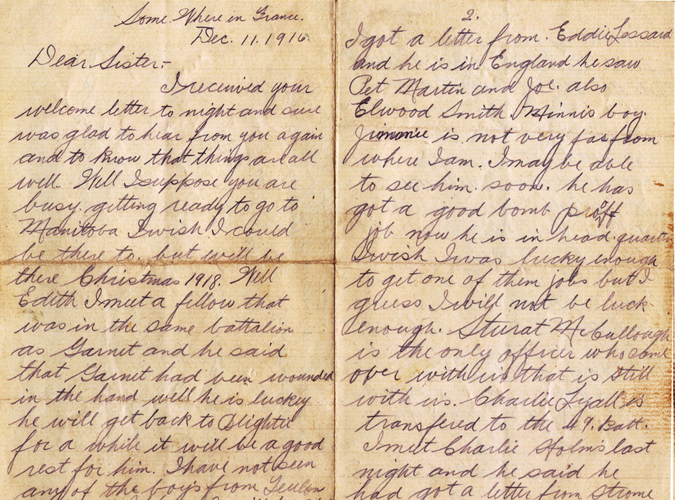 Some. Where in France.
Dec. 11. 1916
Dear Sister:-
I received your
welcome letter to night and sure
was glad to hear from you again
and to know that things are all
well. Well I suppose you are
busy. getting ready to go to
Manitoba I wish I could
be there to. but will be
there Christmas 1918. Well
Edith I met a fellow that
was in the same battalion
as Garnet and he said
that Garnet had been wounded
in the hand well he is lucky
he will get back to Blightie
for a while it will be a good
rest for him. I have not seen
any of the boys from
2.
I got a letter from. Eddie Lessard
and he is in England he saw
Pet Martin and Joe. also
Elwood Smith Minnis boy.
Jimmie is not very far from
where I am. I may be able
to see him. soon. he has
got a good bomb proff
job now he is in head. quarters
I wish I was lucky enough
to get one of them jobs but I
guess I will not be luck
enough. Sturat McCullough
is the only officer who came
over with us that is still
with us. Charlie Lyall is
transfered to the 49. Batt.
I met Charlie Holms last
night and he said he
had got a letter from Strome